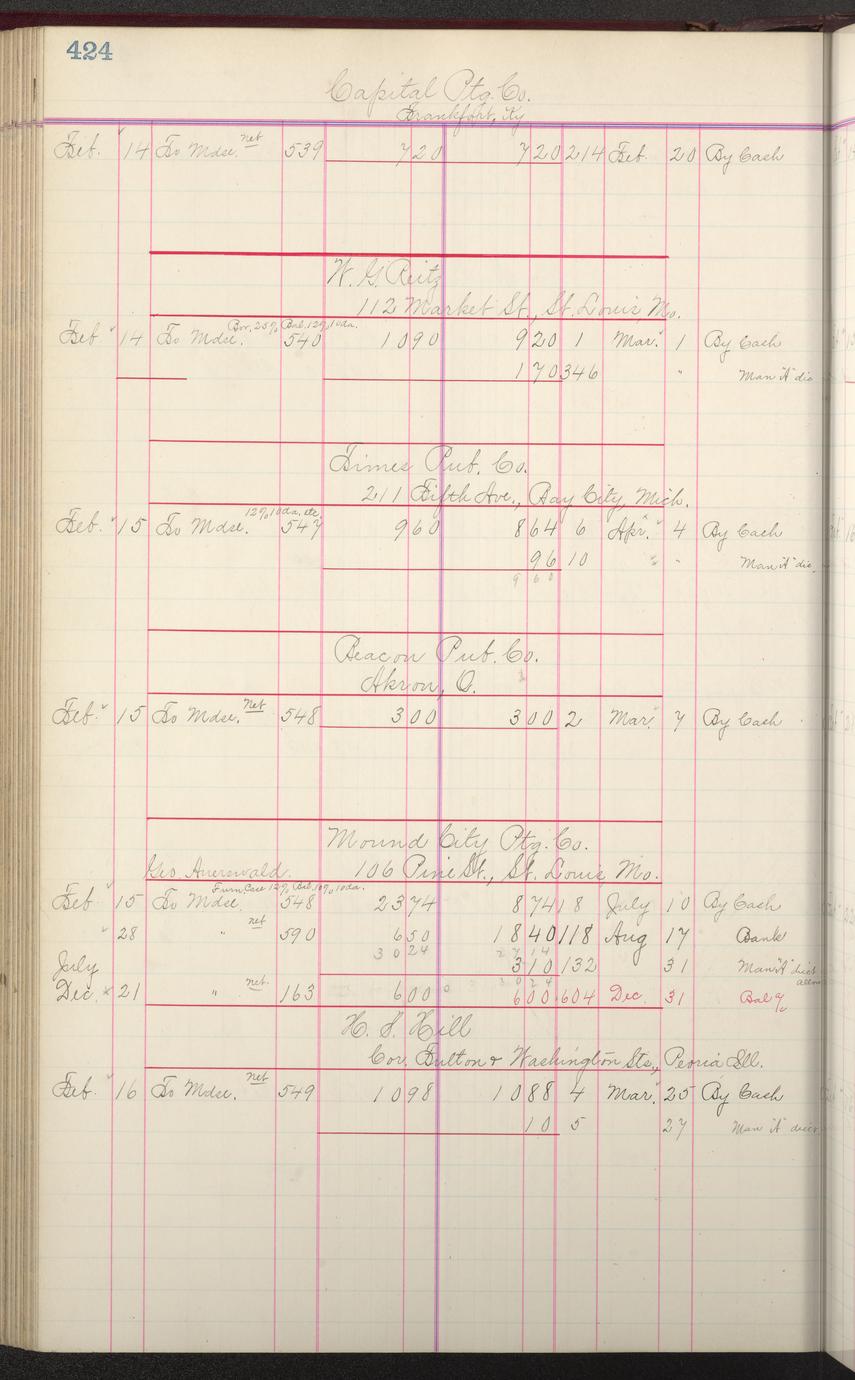 424
Capital Ptg. Co.
Frankfort, Ky
Feb. 14 To Mdse. net 539 7 20 7 20 214 Feb. 20 By Cash
W. G. Reitz
112 Market St., St. Louis, Mo.
Bor. 25% Bal. 12% 10 da.
Feb 14 To Mdse. 540 10 90 9 20 1 Mar. 1 By Cash
1 70 346 " Man "A" dis
Times Pub. Co.
211 Fifth Ave., Bay City, Mich.
12% 10 da. etc.
Feb. 15 To Mdse. 547 9 60 8 64 6 Apr. 4 By Cash
96 10 " " Man "A" dis.
9 60
Beacon Pub. Co.
Akron, O.
Feb. 15 To Mdse. Net 548 3 00 3 00 2 Mar. 7 By Cash
Mound City Ptg. Co.
Geo Auerswald. 106 Pine St., St. Louis Mo.
Furn Case 12% Bal. 10% 10 da.
Feb 15 To Mdse. 548 23 74 8 74 18 July 10 By Cash
" 28 " net 590 6 50 18 40 118 Aug 17 Bank
30 24 27 14
July 3 10 132 31 Man "A" disct
30 24 allow
Dec. x 21 " net. 163 6 00 6 00 604 Dec. 31 Bal %
H. S. Hill
Cor. Fulton & Washington Sts., Peoria Ill.
Feb. 16 To Mdse. net 549 10 98 10 88 4 Mar. 25 By Cash
10 5 27 Man "A"